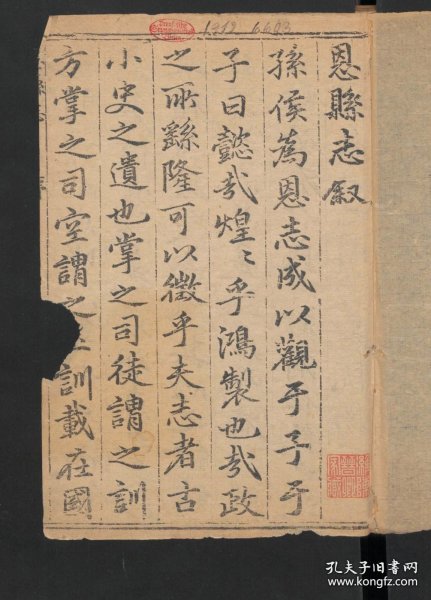 恩縣志叙
孫侯為恩志成以觀于予予
子曰懿哉煌〻乎鴻製也哉政
之所繇隆可以徵乎夫志者言
小史之遺也掌之司徒謂之訓
方掌之司空謂之土訓載在國
1312 6603
孔夫子旧书网
www.kongfz.com